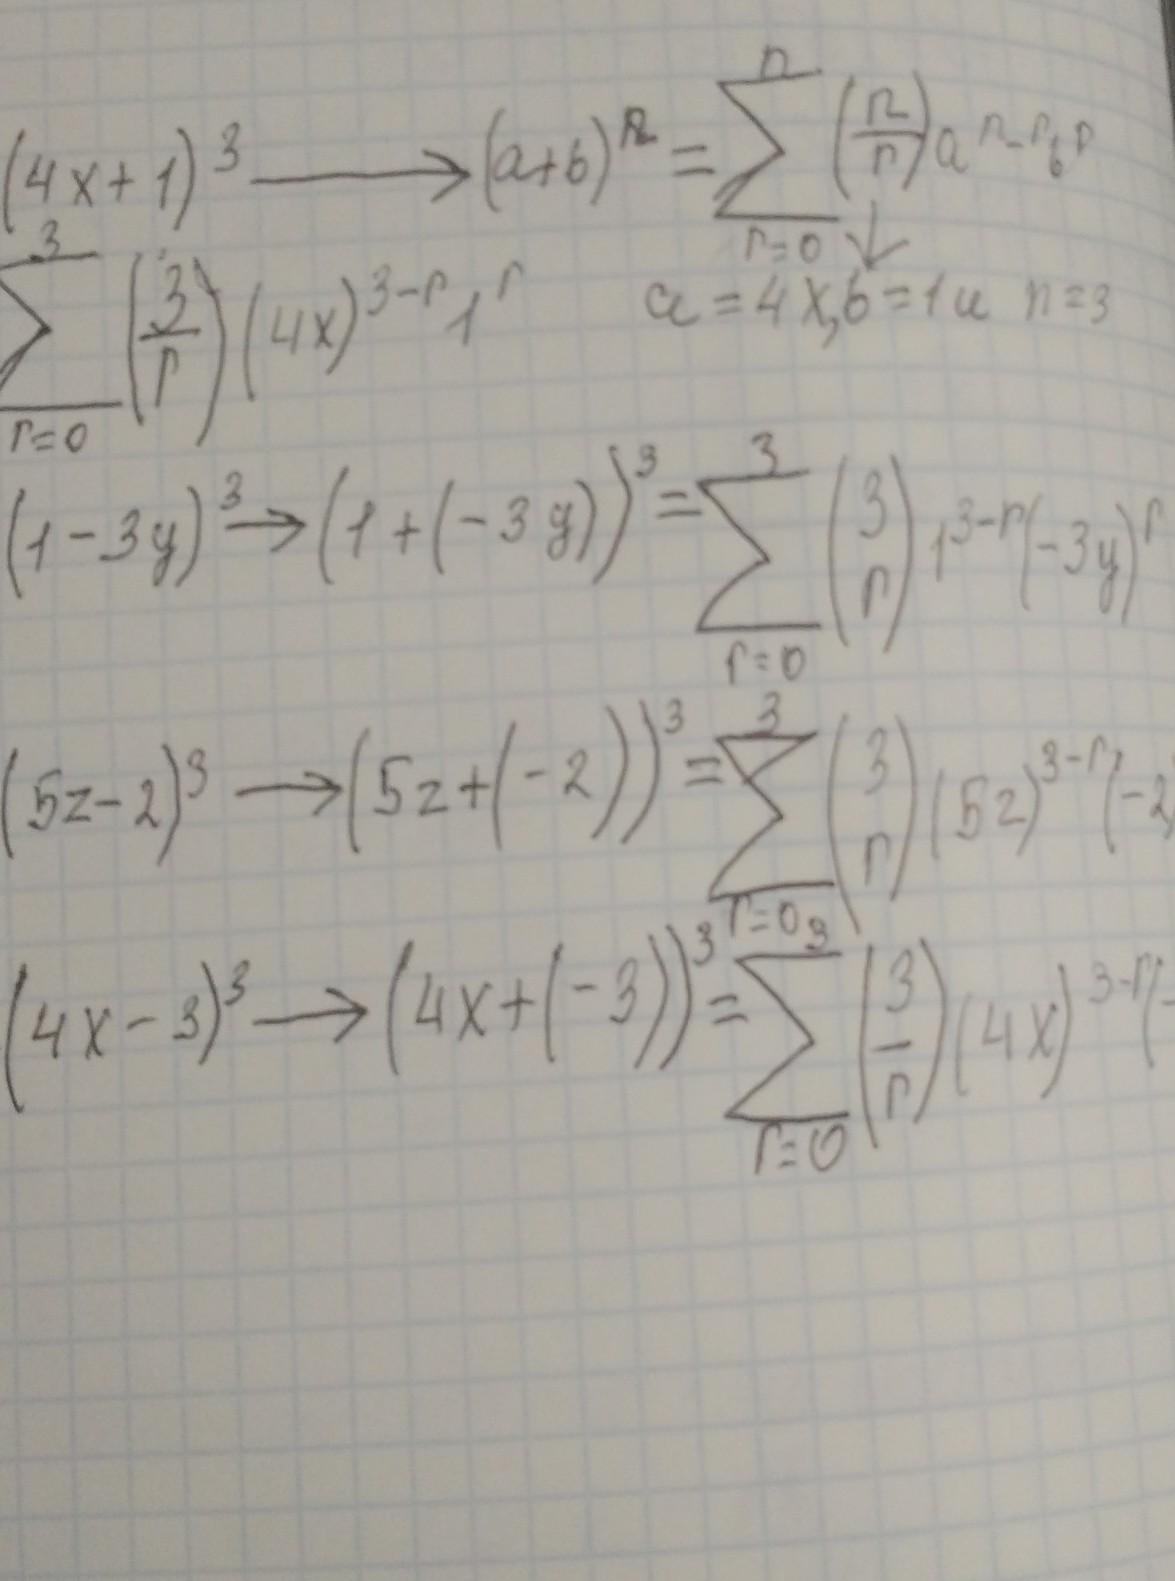 (4x+1)³ ⟶ (a+b)ⁿ = ∑_{r=0}^{n} (n/r) a^{n-r} b^r
∑_{r=0}^{3} (3/r) (4x)^{3-r} 1^r ↓ a = 4x, b = 1 и n = 3
(1-3y)³ → (1+(-3y))³ = ∑_{r=0}^{3} (3 r) 1^{3-r} (-3y)^r
(5z-2)³ ⟶ (5z+(-2))³ = ∑_{r=0}^{3} (3 r) (5z)^{3-r} (-2
(4x-3)³ ⟶ (4x+(-3))³ = ∑_{r=0}^{3} (3/r) (4x)^{3-r} (-